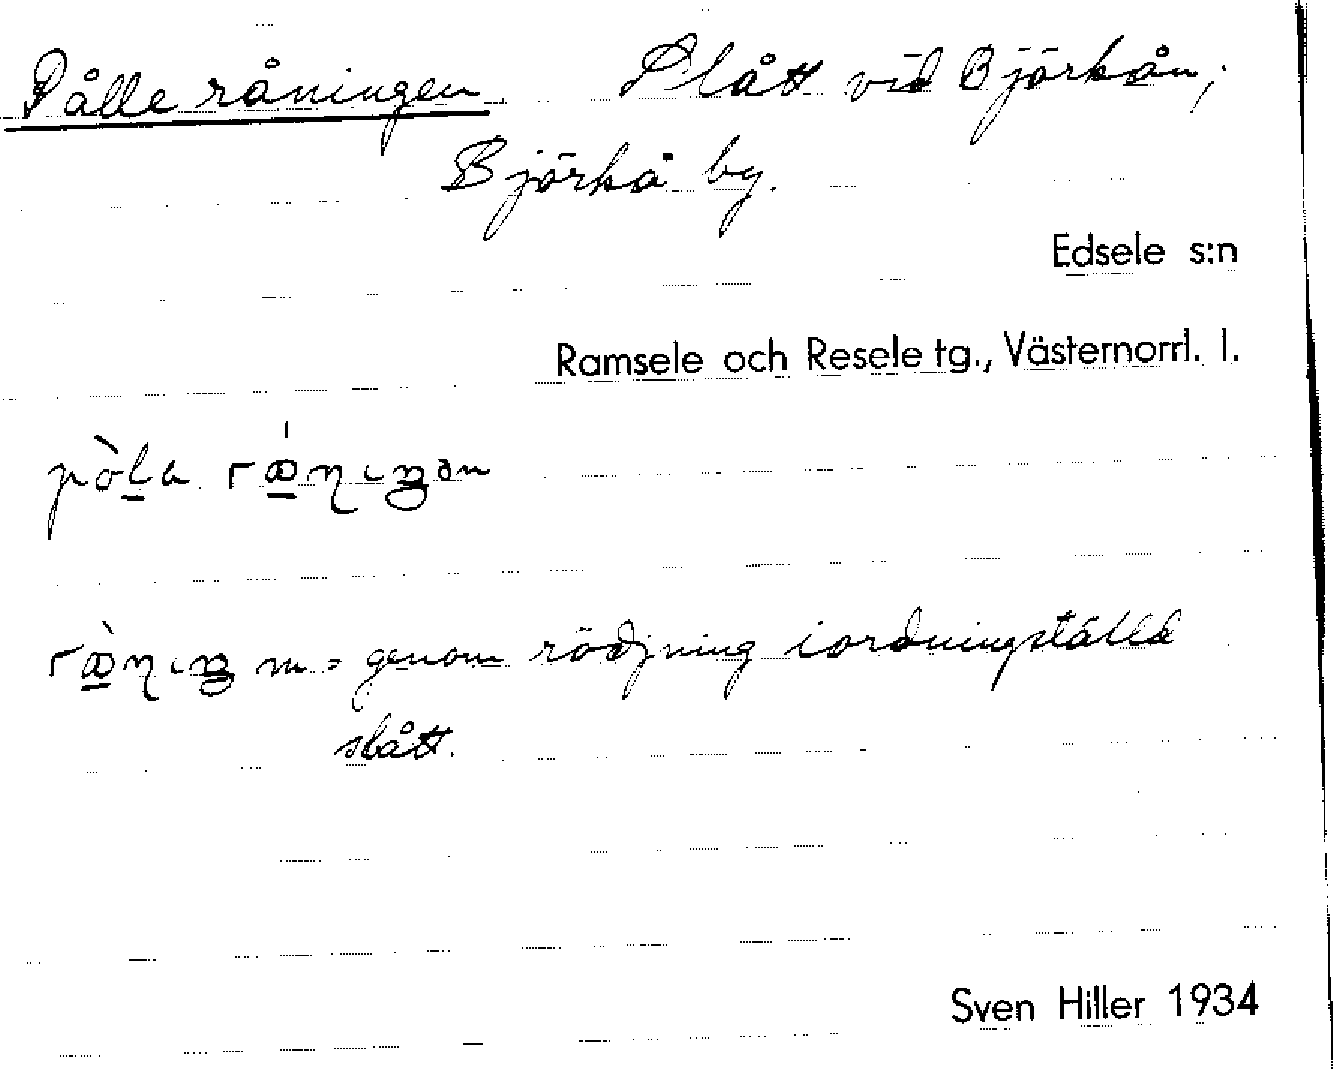 Pålle råningen Slått vid Björkån,
Björkå by.
Edsele s:n
Ramsele och Resele tg., Västernorrl. l.
m = genom rödjning iordningställd
slått.
Sven Hiller 1934